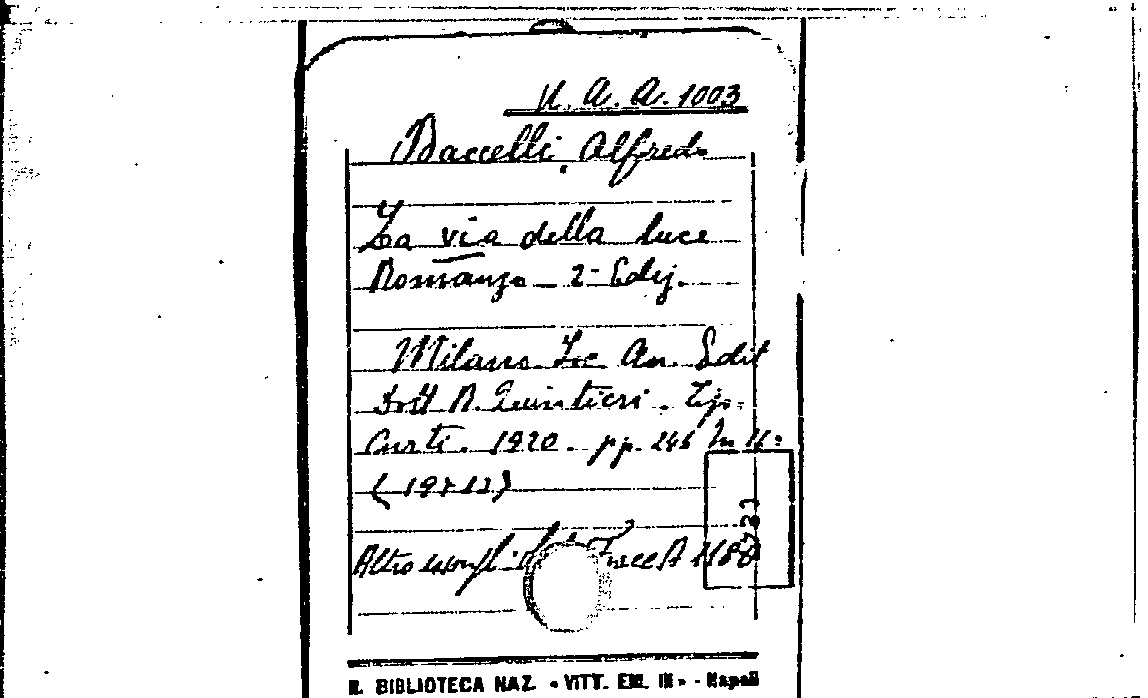 N. A. A. 1003
Baccelli Alfredo
La via della luce
Romanzo – 2ª Ediz.
Milano. Soc. An. Edit
Dott R. Quintieri. Tip.
Curti. 1920. pp. 246 In 16º
(19×12)
Altro esempl: A 1180
R. BIBLIOTECA NAZ. «VITT. EM. III» - Napoli